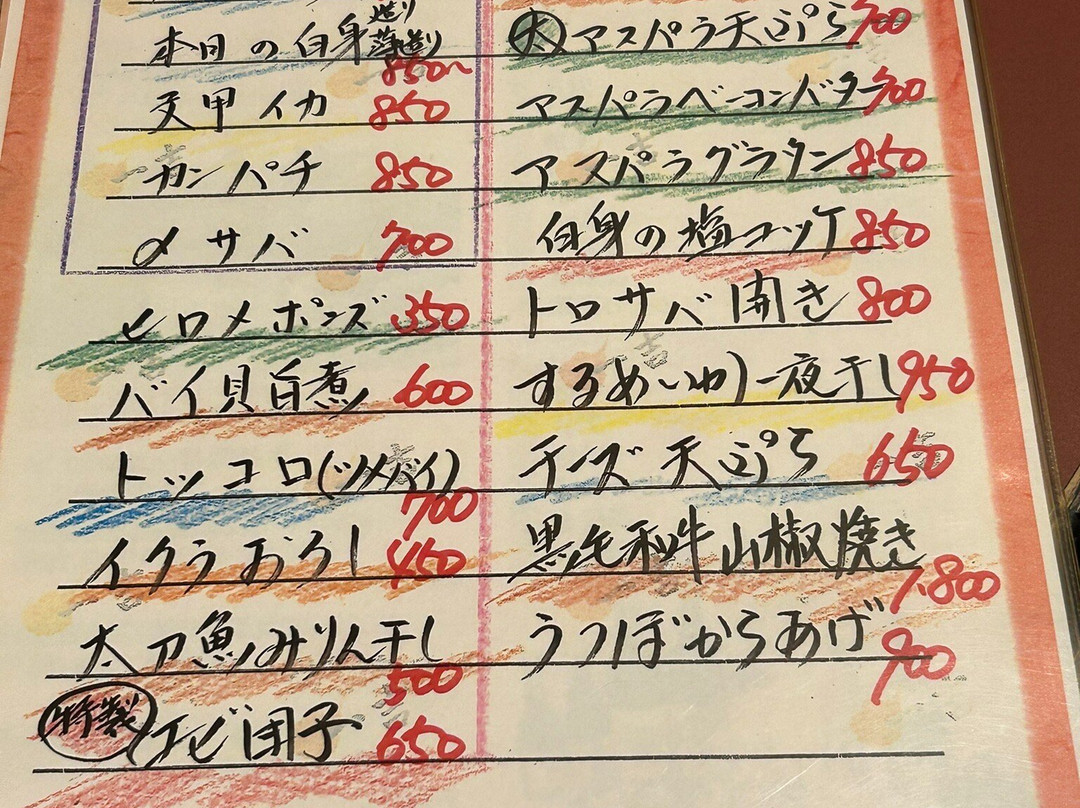 本日の白身 造り 薄造り 850~
天甲イカ 850
カンパチ 850
〆サバ 700
ヒロメポンズ 350
バイ貝旨煮 600
トッコロ(ツメバイ) 700
イクラおろし 450
太刀魚みりん干し 500
特製 エビ団子 650
太 アスパラ天ぷら 700
アスパラベーコンバター 700
アスパラグラタン 850
白身の塩コッケ 850
トロサバ開き 800
するめいか一夜干し 950
チーズ天ぷら 650
黒毛和牛山椒焼き 1.800
うつぼからあげ 900